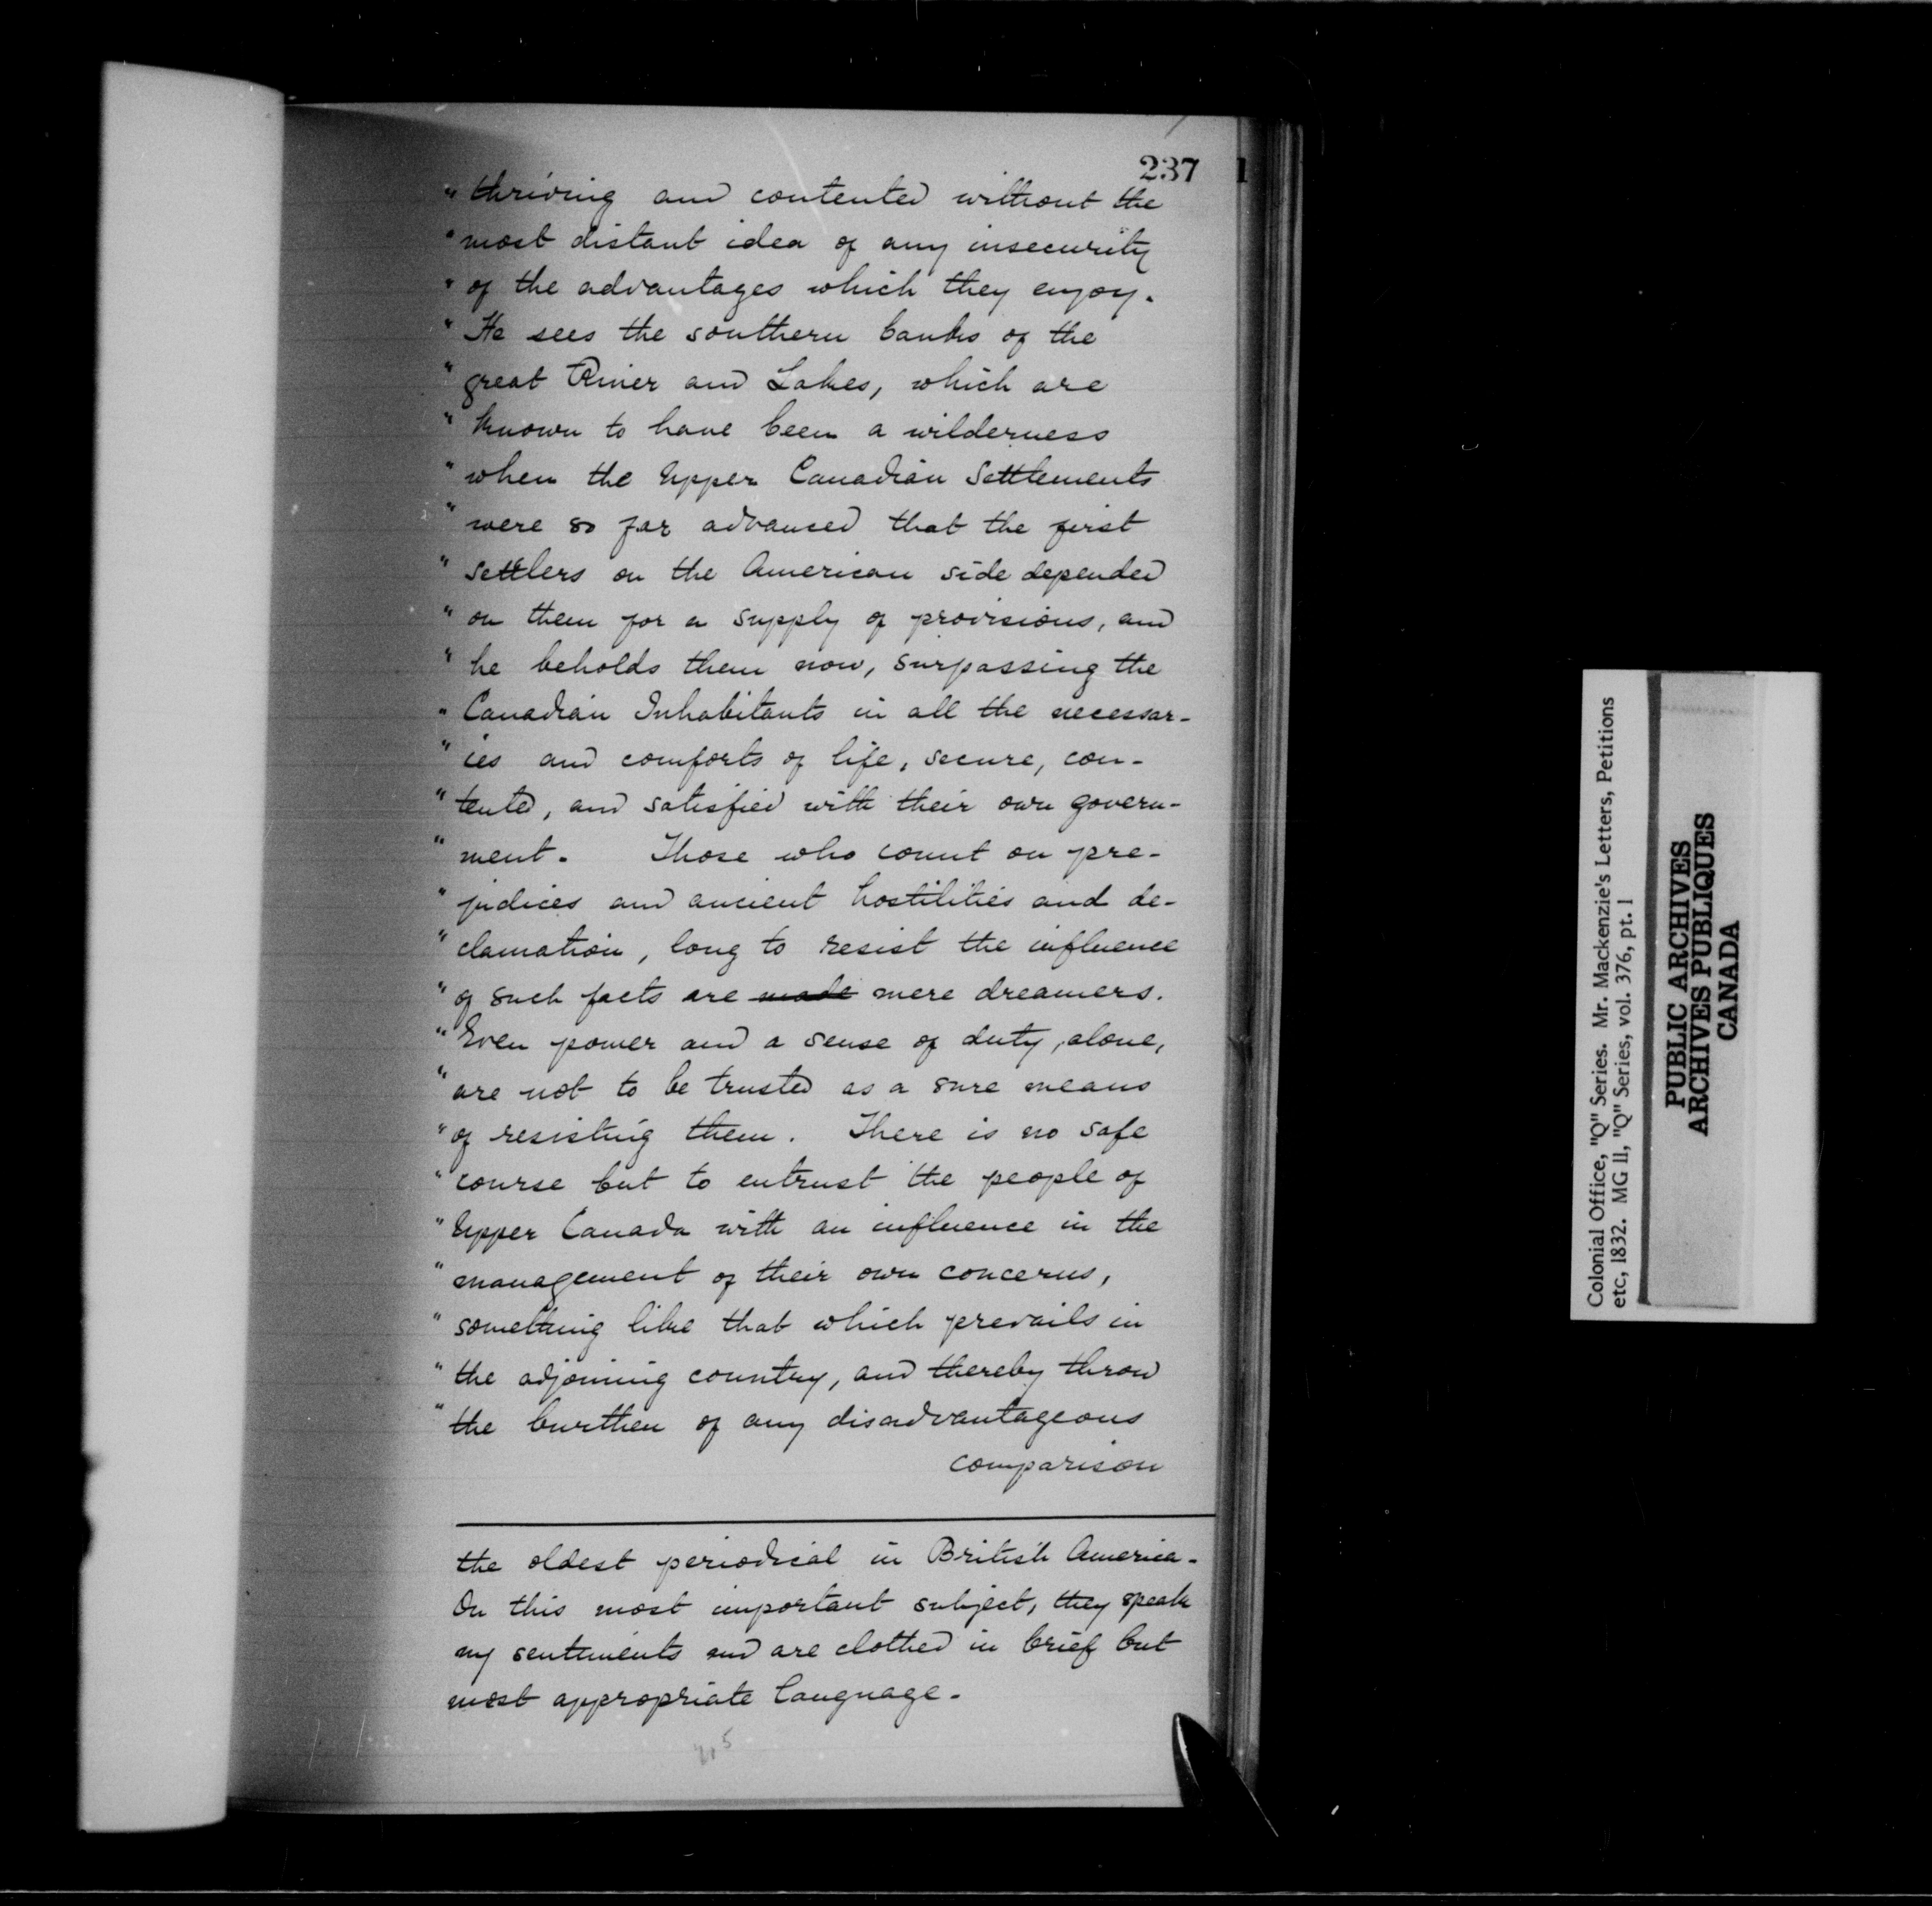 237
" thriving and contented without the
" most distant idea of any insecurity
" of the advantages which they enjoy.
" He sees the southern banks of the
" great River and Lakes, which are
" known to have been a wilderness
" when the Upper Canadian Settlements
" were so far advanced that the first
" settlers on the American side depended
" on them for a supply of provisions, and
" he beholds them now, surpassing the
" Canadian Inhabitants in all the necessar-
" ies and comforts of life, secure, con-
" tented, and satisfied with their own govern-
" ment. Those who count on pre-
" judices and ancient hostilities and de-
" clamation, long to resist the influence
" of such facts are made mere dreamers.
" Even power and a sense of duty, alone,
" are not to be trusted as a sure means
" of resisting them. There is no safe
" course but to entrust the people of
" Upper Canada with an influence in the
" management of their own concerns,
" something like that which prevails in
" the adjoining country, and thereby throw
" the burthen of any disadvantageous
comparison
the oldest periodical in British America.
On this most important subject, they speak
my sentiments and are clothed in brief but
most appropriate language.
Colonial Office, "Q" Series. Mr. Mackenzie's Letters, Petitions
etc, 1832. MG 11, "Q" Series, vol. 376, pt. 1
PUBLIC ARCHIVES
ARCHIVES PUBLIQUES
CANADA